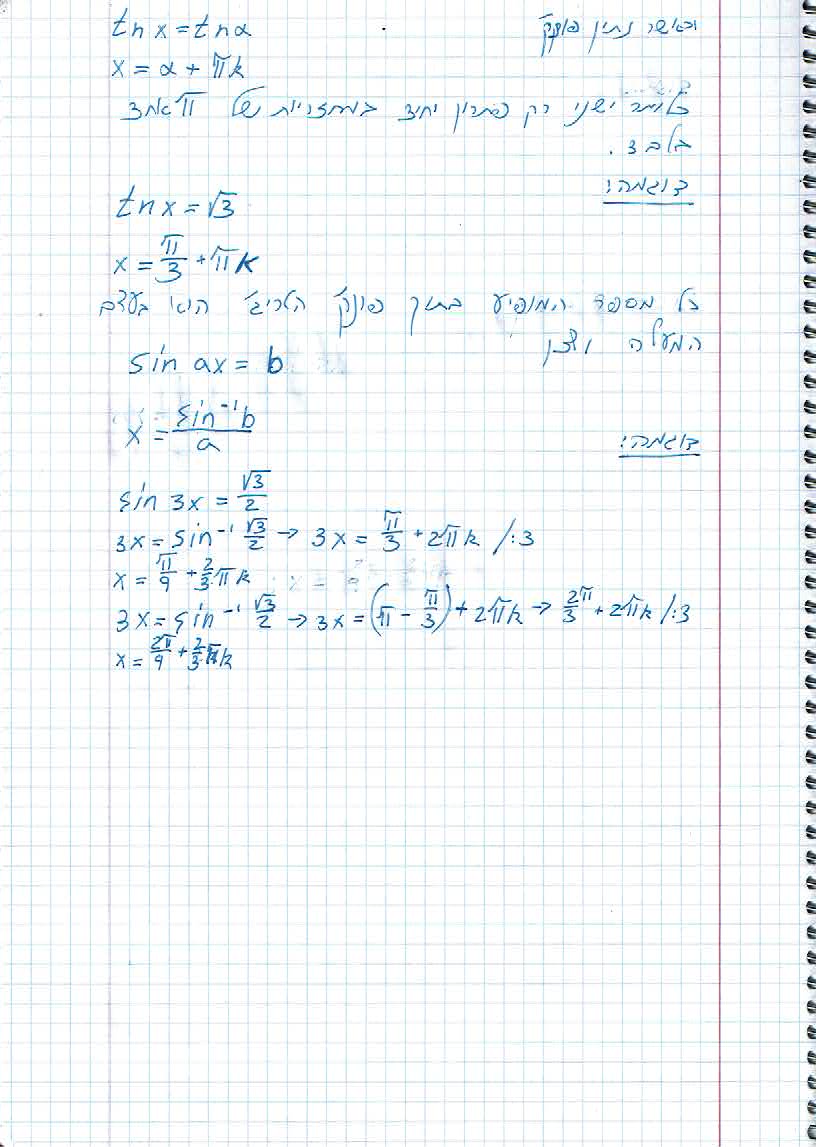 וכאשר נתין פונק'
tn x = tn α
x = α + πk
כלומר ישני רק פתרון יחיד במחזריות של π אחד
בלבד.
דוגמה:
tn x = √3
x = π/3 + πk
כל מספר המופיע בתוך פונק' הטריג' הוא בעצם
המעלה ולכן
sin ax = b
x = sin⁻¹b/a
דוגמה:
sin 3x = √3/2
3x = sin⁻¹ √3/2 → 3x = π/3 + 2πk /:3
x = π/9 + 2/3 πk
3x = sin⁻¹ √3/2 → 3x = (π - π/3) + 2πk → 2π/3 + 2πk /:3
x = 2π/9 + 2/3 πk